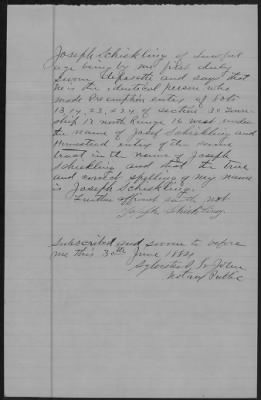 Joseph Schickling of lawful
age being by me first duly
sworn deposeth and says that
he is the identical person who
made Preemption entry of Lots
13, 14, 23, & 24 of section 30 Town-
ship 12 north Range 16 west under
the name of Josef Schickling and
Homestead entry of the same
tract in the name of Joseph
Schickling and that the true
and correct spelling of my name
is Joseph Schickling.
Further affiant saith not
Joseph Schickling.
Subscribed and sworn to before
me this 30th June 1884
Notary Public